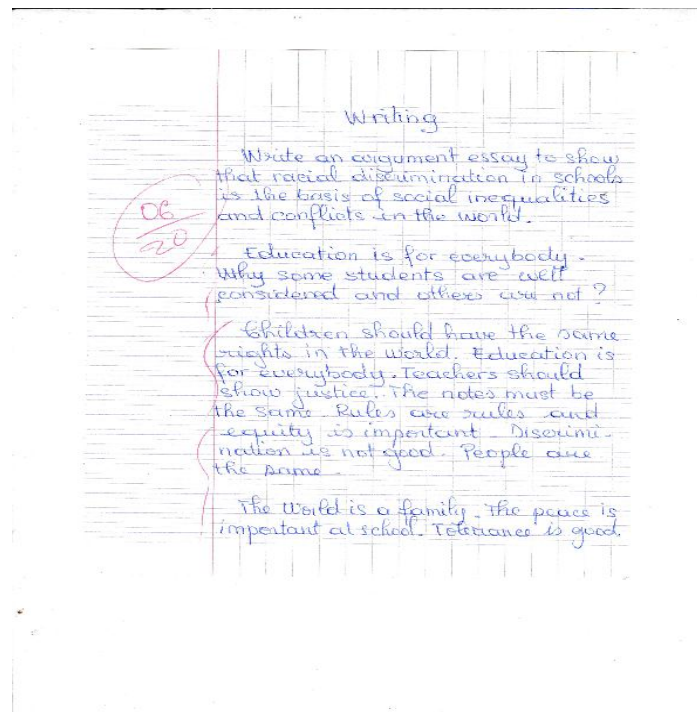 Writing
Write an argument essay to show
that racial discrimination in schools
is the basis of social inequalities
and conflicts in the world.
06
20
Education is for everybody.
Why some students are well
considered and others are not?
Children should have the same
rights in the world. Education is
for everybody. Teachers should
show justice. The notes must be
the same. Rules are rules and
equity is important. Discrimi-
nation is not good. People are
the same.
The world is a family. The peace is
important at school. Tolerance is good.